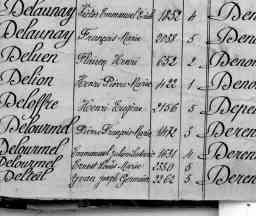 Delaunay Victor Emmanuel 1852 4 Den
Delaunay François Marie 2038 5 Deno
Deluen Henri 652 2 Denou
Delion Henri Pierre Marie 422 1 Deno
Deloffre Henri Eugène 2156 5 Depe
Delourmel Pierre François Marie 5 Deren
Delourmel Emmanuel 1431 4 Deren
Delourmel Ernest Louis Marie 5 Deren
Joseph Germain 2262 5 Deren